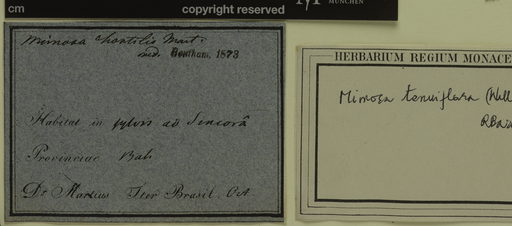 cm
copyright reserved
MÜNCHEN
Mimosa hostilis Mart.
Bentham. 1873
Habitat in sylvis ad Sincorá
Provinciae Bah
Dr Martius Iter Brasil. Oct
HERBARIUM REGIUM MONACE
Mimosa tenuiflora (Will